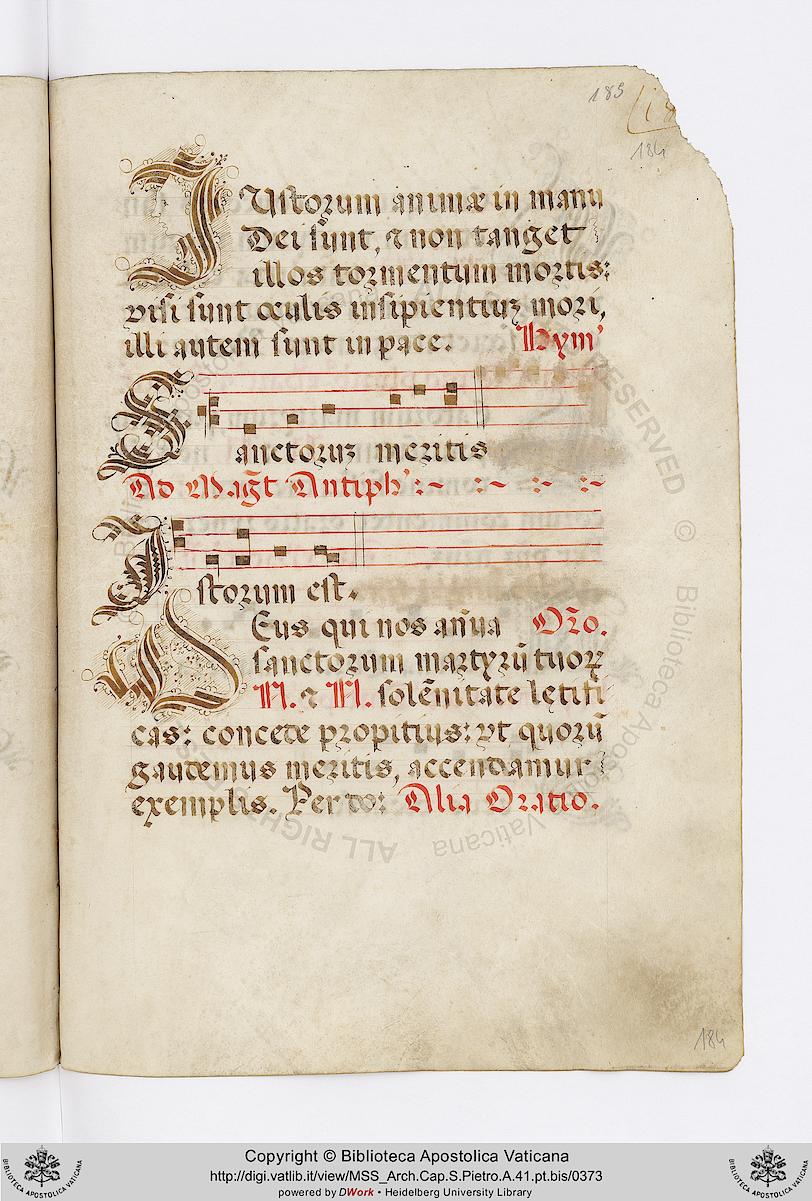 185
184
IUstorum animæ in manu
Dei sunt, & non tanget
illos tormentum mortis:
visi sunt oculis insipientiuȝ mori,
illi autem sunt in pace. Hym'
Sanctoruȝ meritis
Ad Magt̄ Antiph':~ :~ :~ :~
Istorum est.
DEus qui nos an̄ua Oro.
sanctorum martyrū tuoꝝ
N. & N. solēnitate lętifi
cas: concede propitius: vt quorū
gaudemus meritis, accendamur
exemplis. Per do: Alia Oratio.
184
ALL RIGHTS RESERVED © Biblioteca Apostolica Vaticana
Copyright © Biblioteca Apostolica Vaticana
http://digi.vatlib.it/view/MSS_Arch.Cap.S.Pietro.A.41.pt.bis/0373
powered by DWork • Heidelberg University Library
BIBLIOTECA APOSTOLICA VATICANA
BIBLIOTECA APOSTOLICA VATICANA